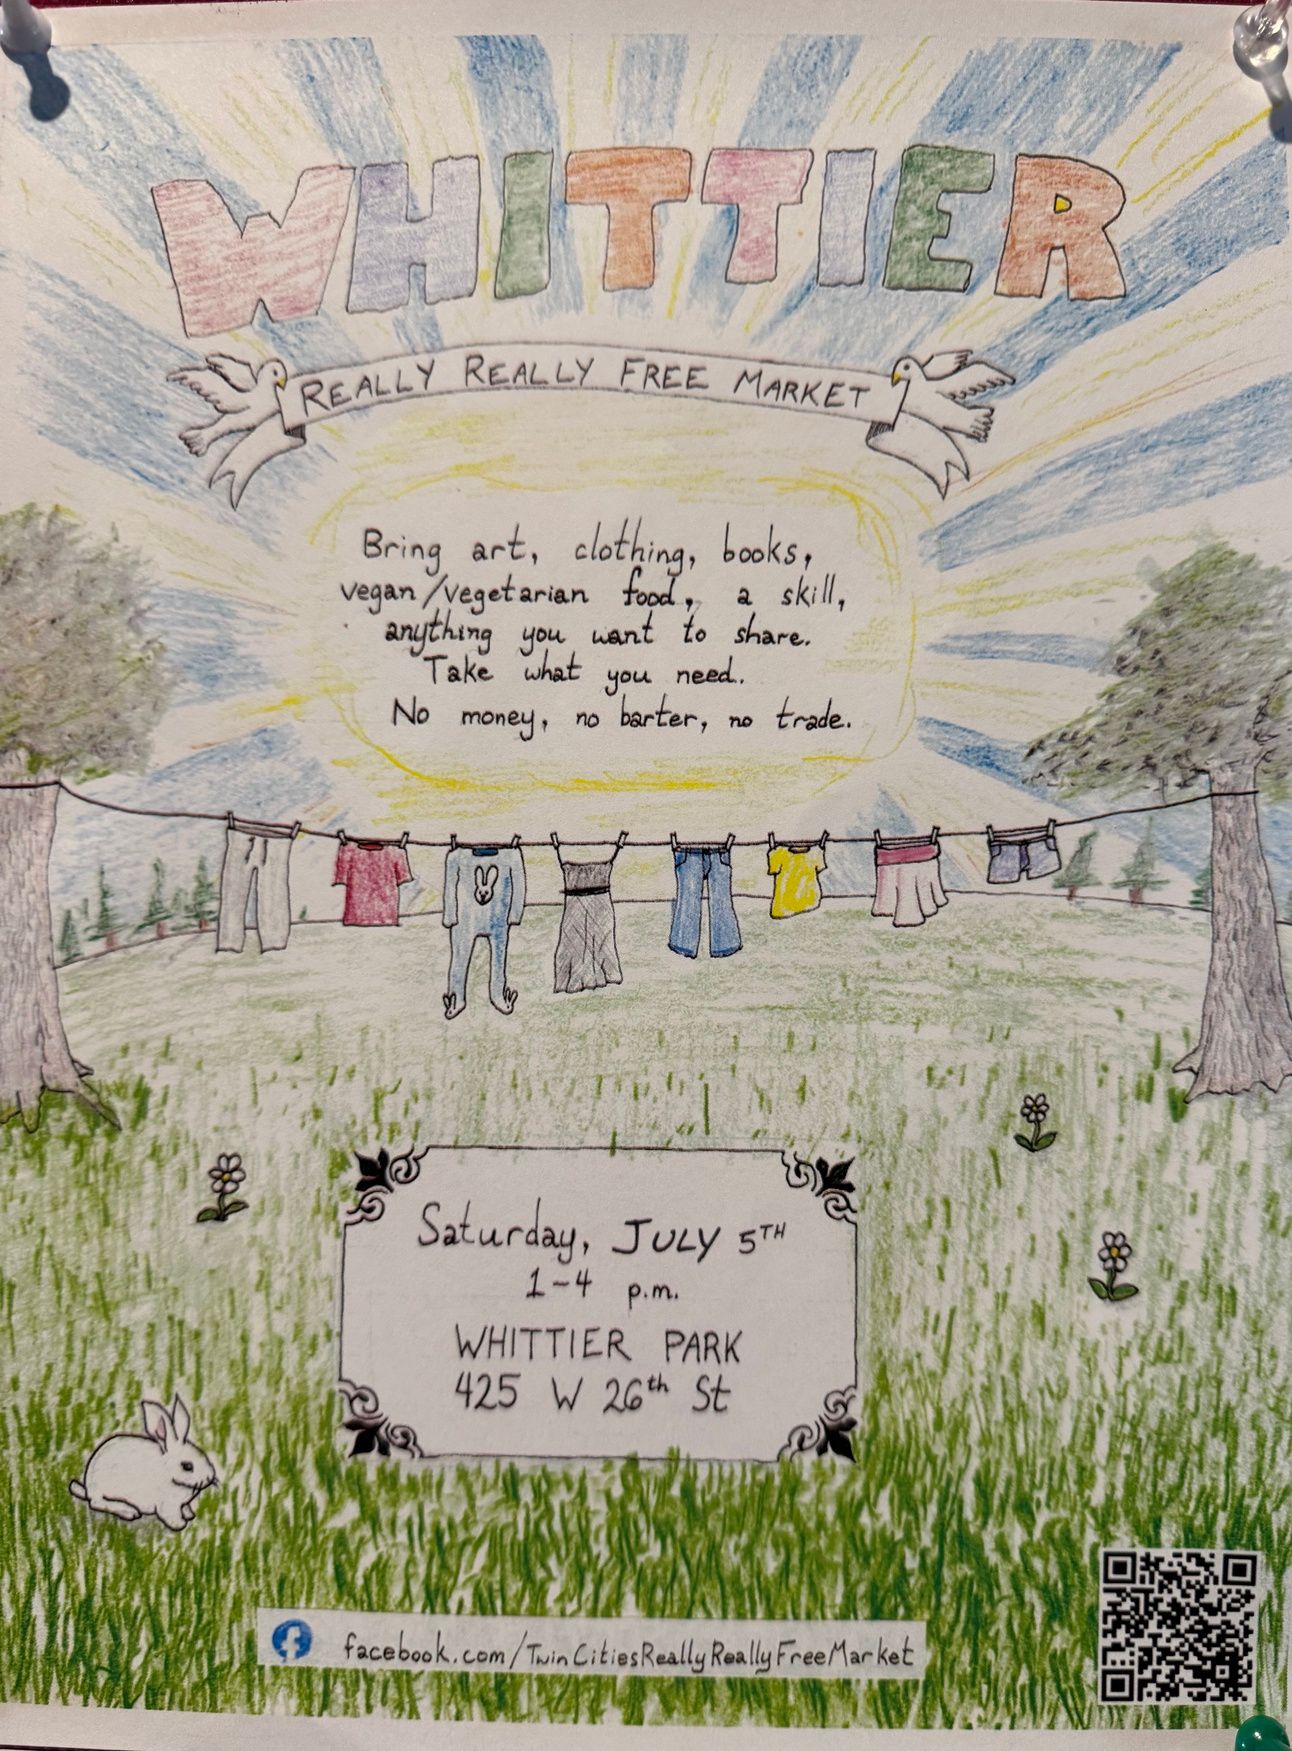 WHITTIER
REALLY REALLY FREE MARKET
Bring art, clothing, books,
vegan/vegetarian food, a skill,
anything you want to share.
Take what you need.
No money, no barter, no trade.
Saturday, JULY 5TH
1-4 p.m.
WHITTIER PARK
425 W 26th St
facebook.com/TwinCitiesReallyReallyFreeMarket